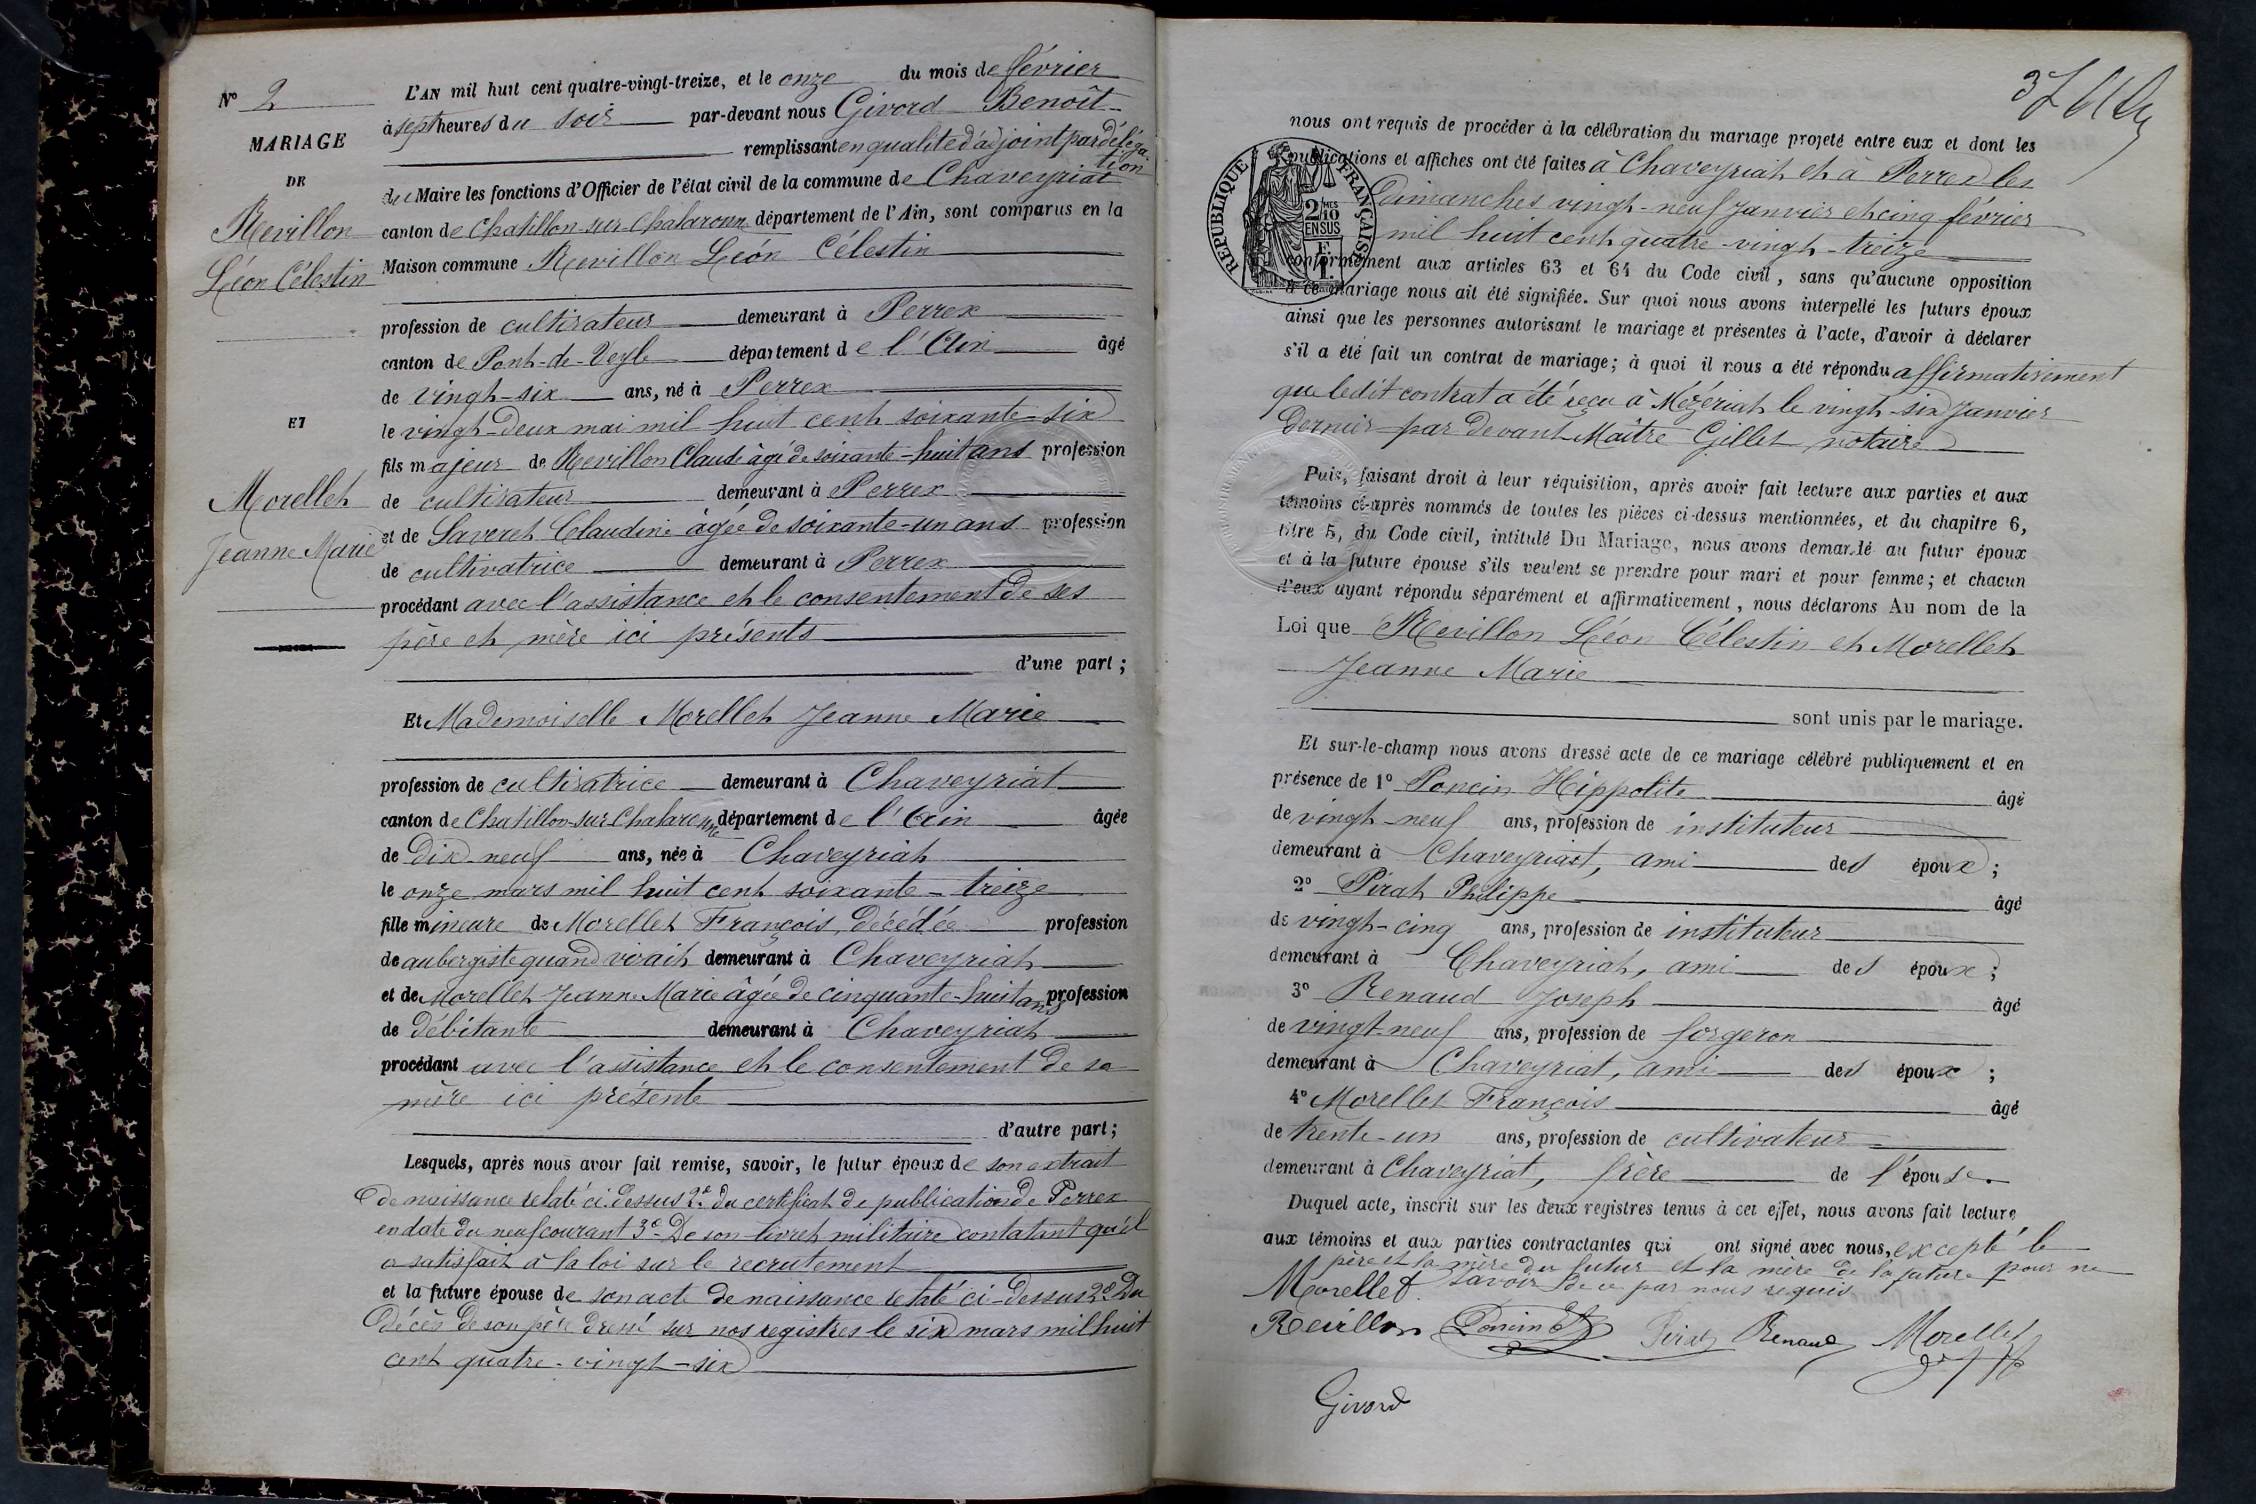 N° 2
MARIAGE
DE
Revillon
Léon Célestin
ET
Morellet
Jeanne Marie
L'AN mil huit cent quatre-vingt-treize, et le onze du mois de février
à sept heures du soir par-devant nous Givord Benoît
remplissant en qualité d'adjoint par déléga-
tion
du Maire les fonctions d'Officier de l'état civil de la commune de Chaveyriat
canton de Chatillon-sur-Chalaronne département de l'Ain, sont comparus en la
Maison commune Revillon Léon Célestin
profession de cultivateur demeurant à Perrex
canton de Pont-de-Veyle département de l'Ain âgé
de vingt-six ans, né à Perrex
le vingt-deux mai mil huit cent soixante-six
fils majeur de Revillon Claude âgé de soixante-huit ans profession
de cultivateur demeurant à Perrex
et de Saveret Claudine âgée de soixante-un ans profession
de cultivatrice demeurant à Perrex
procédant avec l'assistance et le consentement de ses
père et mère ici présents
d'une part ;
Et Mademoiselle Morellet Jeanne Marie
profession de cultivatrice demeurant à Chaveyriat
canton de Chatillon-sur-Chalaronne département de l'Ain âgée
de dix-neuf ans, née à Chaveyriat
le onze mars mil huit cent soixante-treize
fille mineure de Morellet François, décédée profession
de aubergiste quand vivait demeurant à Chaveyriat
et de Morellet Jeanne Marie âgée de cinquante-huit ans profession
de débitante demeurant à Chaveyriat
procédant avec l'assistance et le consentement de sa
mère ici présente
d'autre part ;
Lesquels, après nous avoir fait remise, savoir, le futur époux de son extrait
de naissance relaté ci-dessus 2° du certificat de publication de Perrex
en date du neuf courant 3° De son livret militaire contatant qu'il
a satisfait à la loi sur le recrutement
et la future épouse de son acte de naissance relaté ci-dessus 2° Du
Décès de son père dressé sur nos registres le six mars mil huit
cent quatre-vingt-six
37
nous ont requis de procéder à la célébration du mariage projeté entre eux et dont les
publications et affiches ont été faites à Chaveyriat et à Perrex les
Dimanches vingt-neuf Janvier et cinq février
mil huit cent quatre-vingt-treize
RÉPUBLIQUE FRANÇAISE
2/10 MES
EN SUS
conformément aux articles 63 et 64 du Code civil, sans qu'aucune opposition
à ce mariage nous ait été signifiée. Sur quoi nous avons interpellé les futurs époux
ainsi que les personnes autorisant le mariage et présentes à l'acte, d'avoir à déclarer
s'il a été fait un contrat de mariage ; à quoi il nous a été répondu affirmativement
que ledit contrat a été reçu à Mézériat le vingt-six Janvier
dernier par devant Maître Gillet notaire
Puis, faisant droit à leur réquisition, après avoir fait lecture aux parties et aux
témoins ci-après nommés de toutes les pièces ci-dessus mentionnées, et du chapitre 6,
titre 5, du Code civil, intitulé Du Mariage, nous avons demandé au futur époux
et à la future épouse s'ils veulent se prendre pour mari et pour femme ; et chacun
d'eux ayant répondu séparément et affirmativement, nous déclarons Au nom de la
Loi que Revillon Léon Célestin et Morellet
Jeanne Marie
sont unis par le mariage.
Et sur-le-champ nous avons dressé acte de ce mariage célébré publiquement et en
présence de 1° Poncin Hippolite âgé
de vingt-neuf ans, profession de instituteur
demeurant à Chaveyriat, ami des époux ;
2° Pirat Philippe âgé
de vingt-cinq ans, profession de instituteur
demeurant à Chaveyriat, ami des époux ;
3° Renaud Joseph âgé
de vingt-neuf ans, profession de forgeron
demeurant à Chaveyriat, ami des époux ;
4° Morellet François âgé
de trente-un ans, profession de cultivateur
demeurant à Chaveyriat, frère de l'épouse.
Duquel acte, inscrit sur les deux registres tenus à cet effet, nous avons fait lecture
aux témoins et aux parties contractantes qui ont signé avec nous, excepté le
père et la mère du futur et la mère de la future pour ne
savoir de ce par nous requis
Morellet
Revillon Poncin Pirat Renaud Morellet
Givord